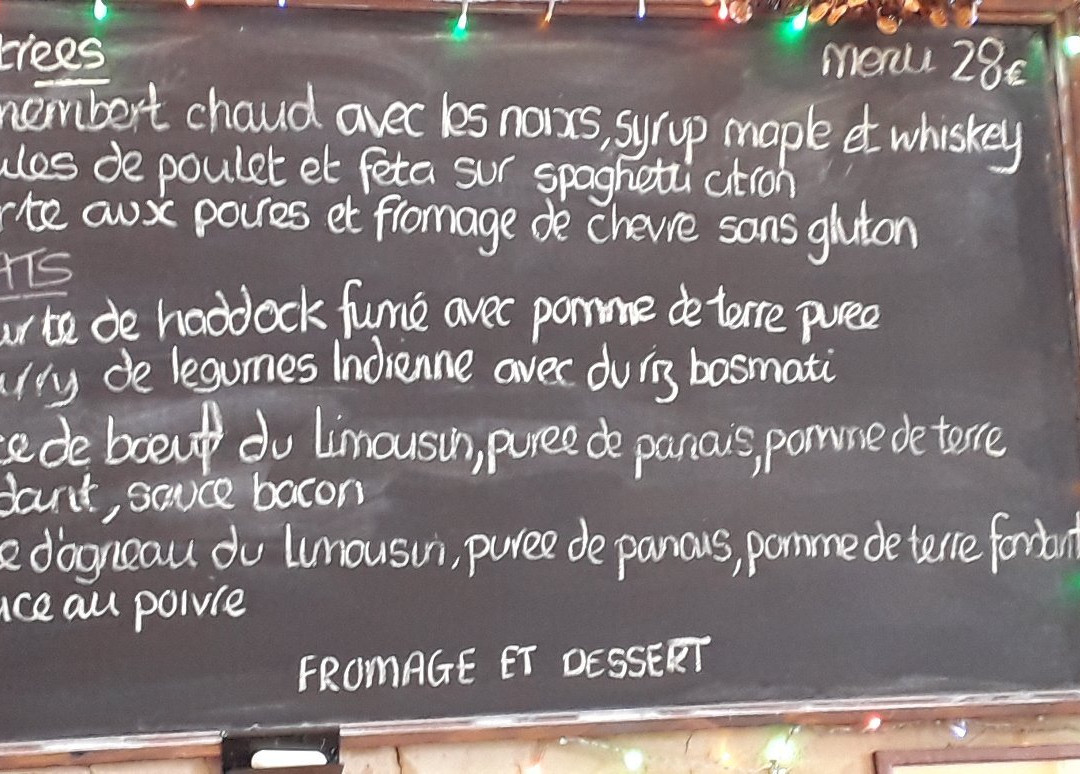 trees
menu 28€
nembert chaud avec les noixs, syrup maple et whiskey
ules de poulet et feta sur spaghetti citron
rte aux poires et fromage de chevre sans gluton
ATS
urte de haddock fumé avec pomme de terre puree
urry de legumes Indienne avec du riz basmati
ce de bœuff du Limousin, puree de panais, pomme de terre
dant, sauce bacon
e d'agneau du Limousin, puree de panais, pomme de terre fondant
uce au poivre
FROMAGE ET DESSERT